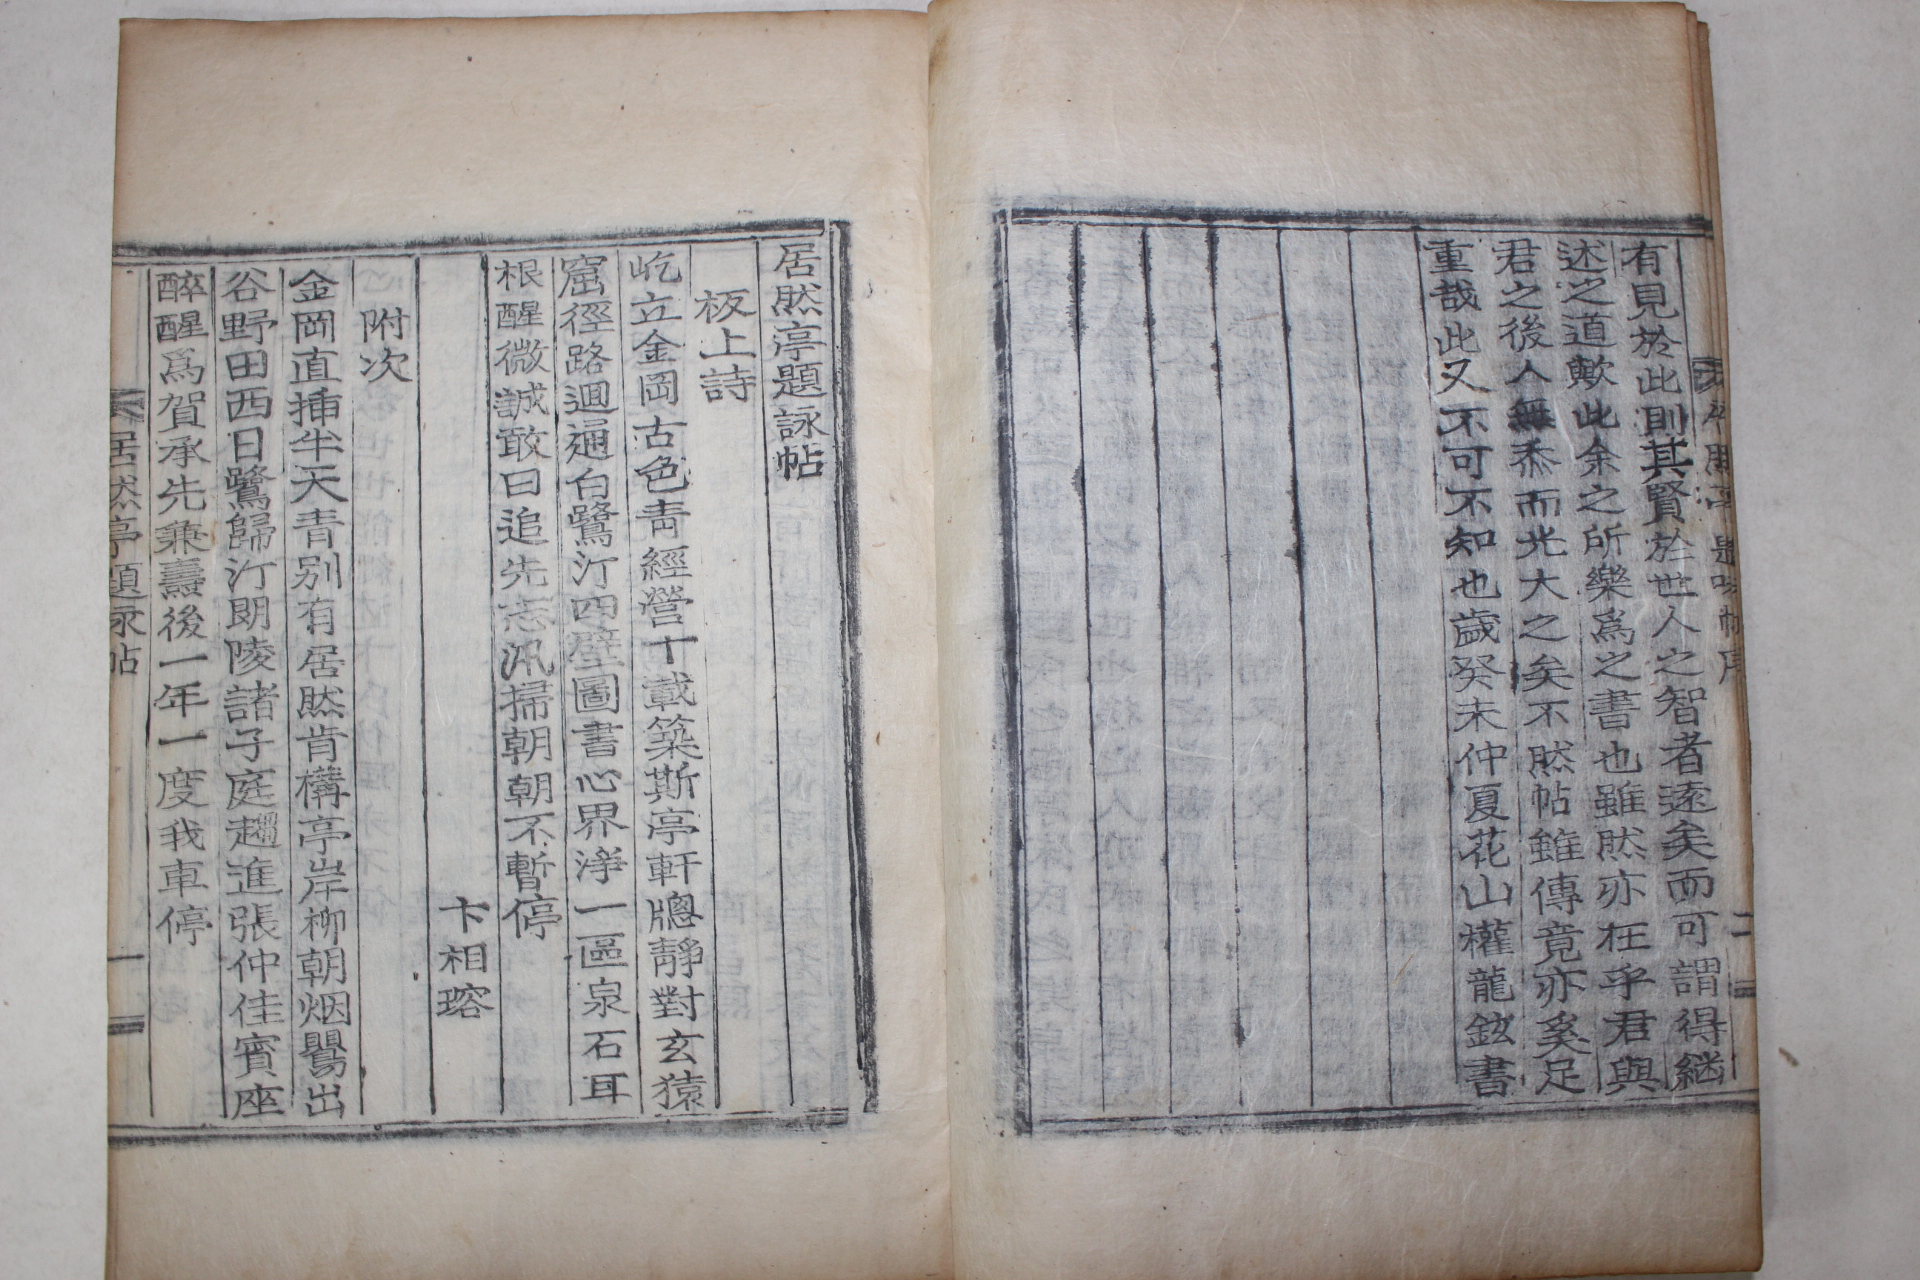 有見於此則其賢於世人之智者遠矣而可謂得繼
述之道歟此余之所樂爲之書也雖然亦在乎君與
君之後人無忝而光大之矣不然帖雖傳竟亦奚足
重哉此又不可不知也歲癸未仲夏花山權龍鉉書
居然亭題詠帖
板上詩
屹立金岡古色靑經營十載築斯亭軒牎靜對玄猿
窟徑路迴通白鷺汀四壁圖書心界淨一區泉石耳
根醒微誠敢曰追先志汛掃朝朝不暫停
卞相瑢
附次
金岡直揷半天青別有居然肯構亭岸柳朝烟鸎出
谷野田西日鷺歸汀朗陵諸子庭趨進張仲佳賓座
醉醒爲賀承先兼壽後一年一度我車停
居然亭題詠帖
一